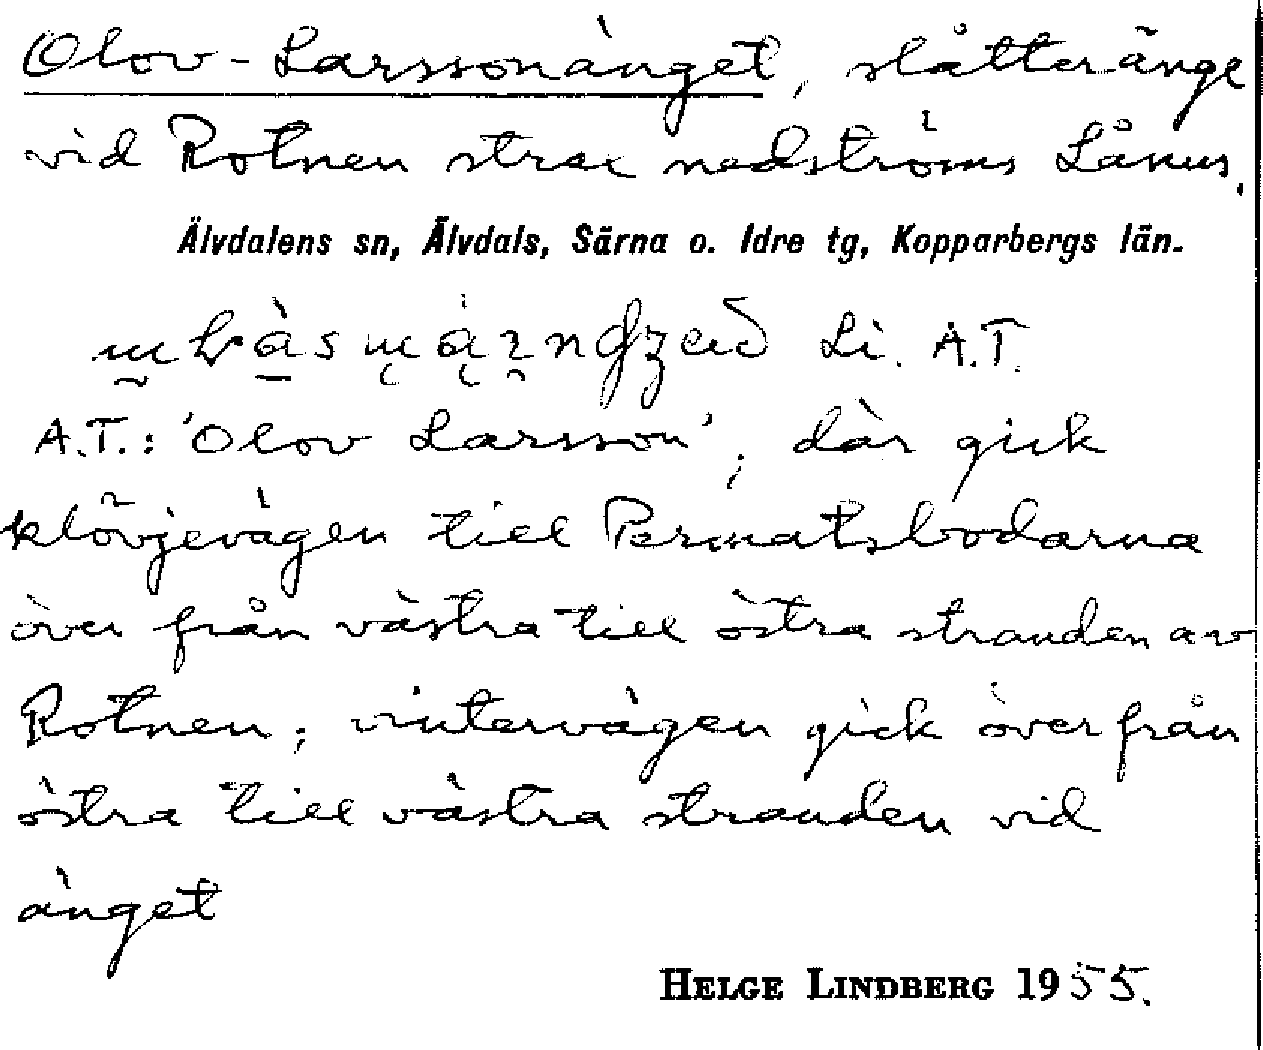 Olov-Larssonänget, slåtteränge
vid Rotnen strax nedströms Lånus.
Älvdalens sn, Älvdals, Särna o. Idre tg, Kopparbergs län.
Li. A.T.
A.T.: 'Olov Larsson'; där gick
klövjevägen till Permatsbodarna
över från västra till östra stranden av
Rotnen; vintervägen gick över från
östra till västra stranden vid
änget
HELGE LINDBERG 1955.